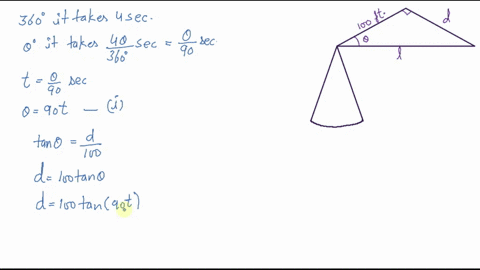 360° it takes 4 sec.
θ° it takes 4θ/360° sec = θ/90 sec.
t = θ/90 sec
θ = 90t — (i)
tanθ = d/100
d = 100tanθ
d = 100tan(90t)
100 ft.
d
θ
l